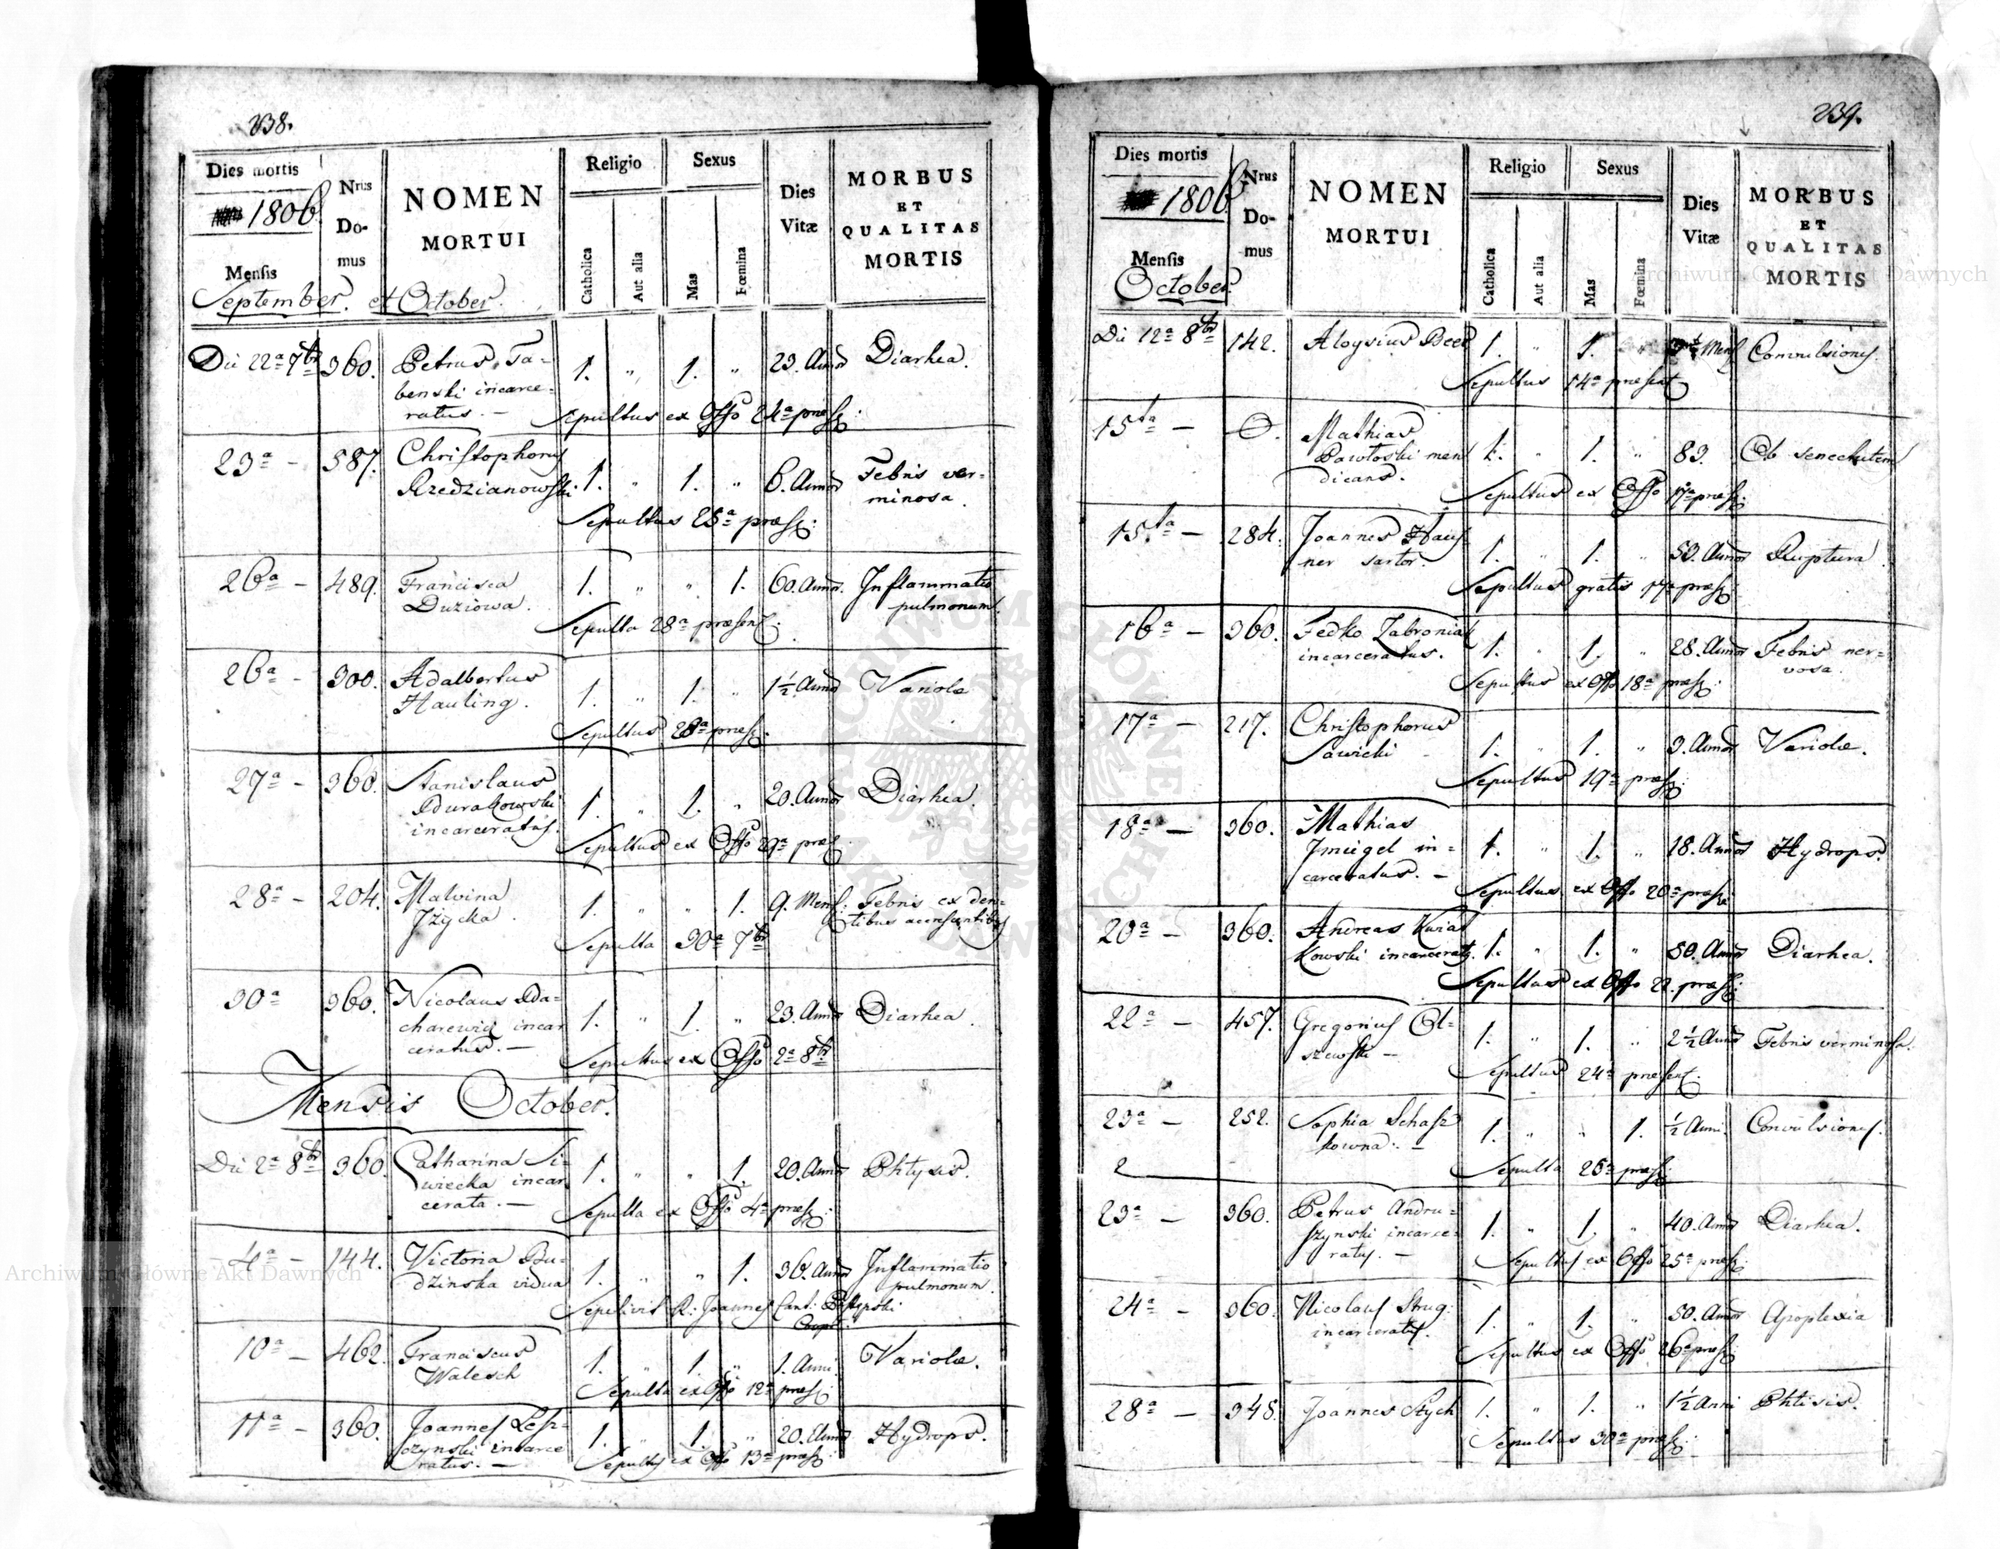 238.
Dies mortis
1806
Mensis
September. et October.
Nrus
Do-
mus
NOMEN
MORTUI
Religio
Catholica
Aut alia
Sexus
Mas
Fœmina
Dies
Vitæ
MORBUS
ET
QUALITAS
MORTIS
Die 22a 7br 360. Petrus Ta- 1. " 1. " 23. Annor Diarhea.
benski incarce-
ratus. — Sepultus ex Offo 24a præs:
23a - 587. Christophorus
Rzedzianowski 1. " 1. " 6. Annor Febris ver-
minosa.
Sepultus 25a præs:
26a - 489. Francisca 1. " " 1. 60. Annor. Inflammatio
Duziowa. pulmonum.
Sepulta 28a præsent:
26a - 300. Adalbertus
Hauling. 1. " 1. " 1½ Anno Variolæ
Sepultus 28a præs:
27a - 360. Stanislaus
Durakowski 1. " 1. " 20. Annor Diarhea.
incarceratus.
Sepultus ex Offo 29a præs
28a - 204. Malvina 1. " " 1. 9. Mens. Febris ex den-
Jżycka. tibus accrescentibus
Sepulta 30a 7br
30a 360. Nicolaus Da-
charewig incar 1. " 1. " 23. Annor Diarhea.
ceratus. —
Sepultus ex Offo 2a 8br
Mensis October.
Die 2a 8br 360 Catharina Si- 1. " " 1. 20. Annor Phtysis.
wiecka incar
cerata. — Sepulta ex Offo 4a præs:
4a - 144. Victoria Bu- 1. " " 1. 36. Annor Inflammatio
dzinska vidua pulmonum.
Sepelivit R: Joannes Cant:
Coop:
10a - 462. Franciscus 1. " 1. " 1. Anni Variolæ.
Walesch
Sepultus ex Offo 12a præs:
11a - 360. Joannes Lesz- 1. " 1. " 20. Annor Hydrops.
czynski incarce
ratus. — Sepultus ex Offo 13a præs:
239.
Dies mortis
1806
Mensis
October
Nrus
Do-
mus
NOMEN
MORTUI
Religio
Catholica
Aut alia
Sexus
Mas
Fœmina
Dies
Vitæ
MORBUS
ET
QUALITAS
MORTIS
Die 12a 8br 142. Aloysius Beer 1. " 1. " Mens Convulsiones.
Sepultus 14a præsent
15ta — O. Mathias
Pawloski men 1. " 1. " 83. Ob senectutem
dicans.
Sepultus ex Offo 17a præs:
15ta — 284. Joannes Haus-
ner sartor. 1. " 1. " 50. Annor Ruptura.
Sepultus gratis 17a præs:
16a — 360. Fedko Zabroniak
incarceratus. 1. " 1. " 28. Annor Febris ner-
vosa.
Sepultus ex Offo 18a præs:
17a — 217. Christophorus
Sawicki 1. " 1. " 3. Annor Variolæ.
Sepultus 19a præs:
18a — 360. Mathias
Zmeigel in- 1. " 1. " 18. Annor Hydrops.
carceratus. —
Sepultus ex Offo 20a præs:
20a — 360. Andreas Kwiat
kowski incarcerat. 1. " 1. " 50. Annor Diarhea.
Sepultus ex Offo 22. præs:
22a — 457. Gregorius Ol-
szewski — 1. " 1. " 2½ Anno Febris verminosa.
Sepultus 24a præsent:
23a — 252. Sophia Schasz
kowna. — 1. " " 1. ½ Anni. Convulsiones.
2 Sepulta 25a præs:
23a — 360. Petrus Andru-
szynski incarce- 1. " 1. " 40. Annor Diarhea.
ratus. —
Sepultus ex Offo 25a præs:
24a — 360. Nicolaus Strug:
incarceratus. 1. " 1. " 50. Annor Apoplexia
Sepultus ex Offo 26a præs:
28a — 348. Joannes Stych 1. " 1. " 1½ Anni Phtisis.
Sepultus 30a præs:
Archiwum Główne Akt Dawnych
Archiwum Główne Akt Dawnych
ARCHIWUM GŁÓWNE AKT DAWNYCH